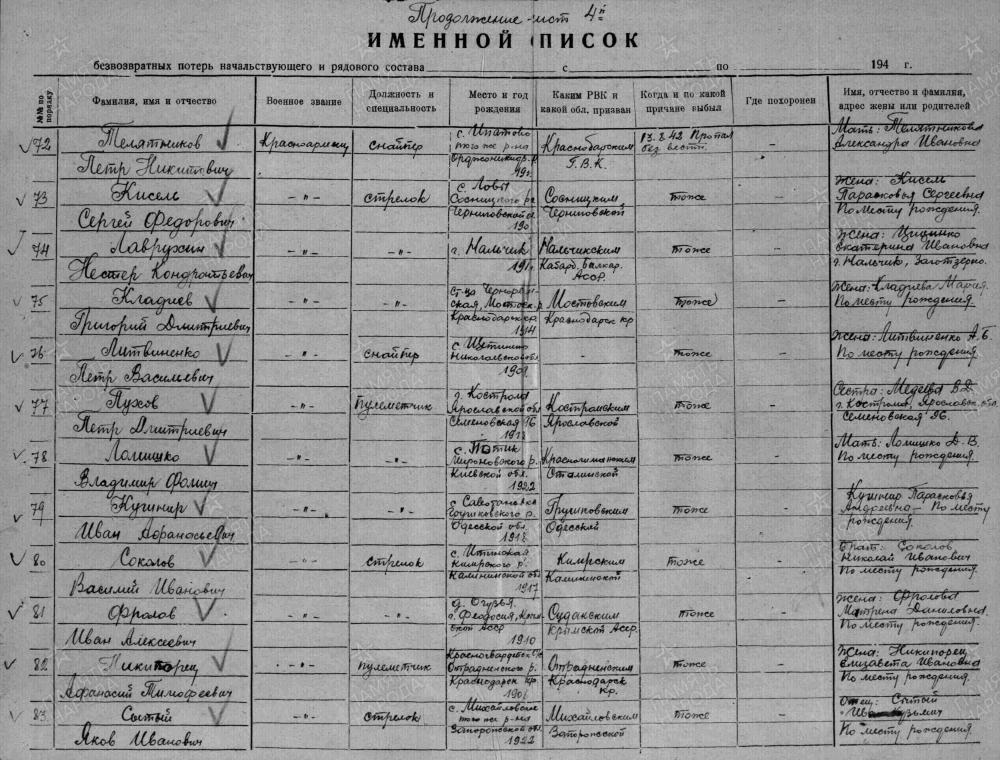 Продолжение лист 4й
ИМЕННОЙ СПИСОК
безвозвратных потерь начальствующего и рядового состава с по 194 г.
№№ по порядку
Фамилия, имя и отчество
Военное звание
Должность и специальность
Место и год рождения
Каким РВК и какой обл. призван
Когда и по какой причине выбыл
Где похоронен
Имя, отчество и фамилия, адрес жены или родителей
72 Телятников Красноармеец снайпер с. Ипатово того же р-на Краснобарским Г.В.К. Пропал без вести – Мать: Телятникова Александра Ивановна
Петр Никитович
73 Кисель -"- стрелок Сосницкого р. Черниговской Сосницким Черниговской тоже – Жена: Кисель Парасковья Сергеевна По месту рождения.
Сергей Федорович
74 Лаврухин -"- -"- г. Нальчик Нальчикским Кабард. балкар. Асср. тоже – Жена: Екатерина Ивановна г. Нальчик, Заготзерно.
Нестер Кондратьевич
75 Кладиев -"- -"- Ст-ца Краснодарск кр. 1914 Мостовским Краснодарск кр тоже – Жена: Кладиева Мария. По месту рождения.
Григорий Дмитриевич
76 Литвиненко -"- снайпер Николаевской обл. – тоже – Жена: Литвиненко А.Б. По месту рождения.
Петр Васильевич
77 Пухов -"- пулеметчик г. Кострома Ярославской обл Семеновская Костромским Ярославской тоже – Сестра: г. Кострома, Ярославск. обл. Семеновская 96.
Петр Дмитриевич
78 Ломишко -"- -"- Мироновского р. Киевской обл. 1922 Сталинской тоже – Мать: Ломишко Д.В. По месту рождения.
Владимир Фомич
79 Кушнир -"- -"- Грушковского р. Одесской обл. Грушковским Одесской тоже – Кушнир Парасковья Андреевна – По месту рождения.
Иван Афанасьевич
80 Соколов -"- стрелок Кимрского р. Калининской обл 1917 Кимрским Калининской тоже – Брат: Соколов Николай Иванович По месту рождения.
Василий Иванович
81 Фролов -"- -"- г. Феодосия, Асср 1910 Судакским Крымской Асср. тоже – Жена: Фролова Матрена Даниловна. По месту рождения.
Иван Алексеевич
82 Никипорец -"- пулеметчик Отрадненского р. Краснодарск кр. Отрадненским Краснодарск кр. тоже – Жена: Никипорец Елизавета Ивановна По месту рождения.
Афанасий Тимофеевич
83 Сытый -"- стрелок того же р-на Запорожской обл 1922 Михайловским Запорожской тоже – Отец: Сытый По месту рождения.
Яков Иванович
ПАМЯТЬ НАРОДА